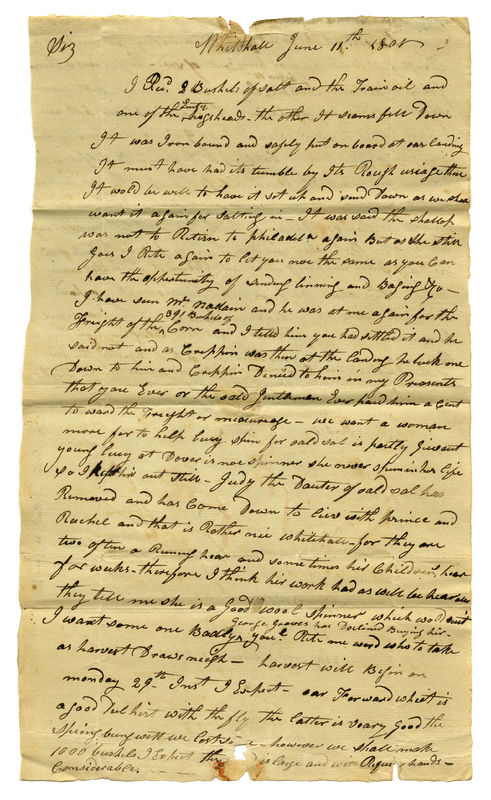 Sir Whitehall June 11th 1801
I Recd. 2 Bushels of salt and the Train oil and
one of the hogsheads - the other It seams fell Down
It was Iron bound and safely put on board at our landing
It must have had its tumble by Its Rough usige there
It wold be well to have it set up and send Down as we shall
want it again for salting in - It was said the shallop
was not to Return to philadela again But as she still
Goes I Rite again to let you noe the same as you Can
have the opertunity of sending linning and Baging &c -
I have seen Mr. nadain and he was at me again for the
Freight of the 991 Bushels of Corn and I telld him you had settled it and he
said not and as Creppin was then at the landing he tuck me
Down to him and Creppin Denied to him in my Presents
that you Ever or the old Jentleman Ever paid him a Cent
to ward the Freight or measurage - we want a woman
more for to help Lucy spin for old sal is partly Giveout
young Lucy at Dover is noe spinner she never spun in her life
so I hier out still - Judy the Dauter of old sal has
Removed and has Come Down to live with prince and
Rachel and that is Rather nie whitehall - for they are
two often a Runing hear and some times his Children hear
for weeks - therefore I think his work had as well be hear
they tell me she is a Good wool spinner which wod suit
I want some one Badly George Graves has Declined Buying her -
you'l Rite me word who to take
as harvest Draws neigh - harvest will Begin on
monday 29th Inst I Expect - our Forward wheat is
a good Del hirt with the fly the latter is veary good the
Spring we - however we shall make
1000 bushels I Expect the is large and will Require hands -
Considerable.